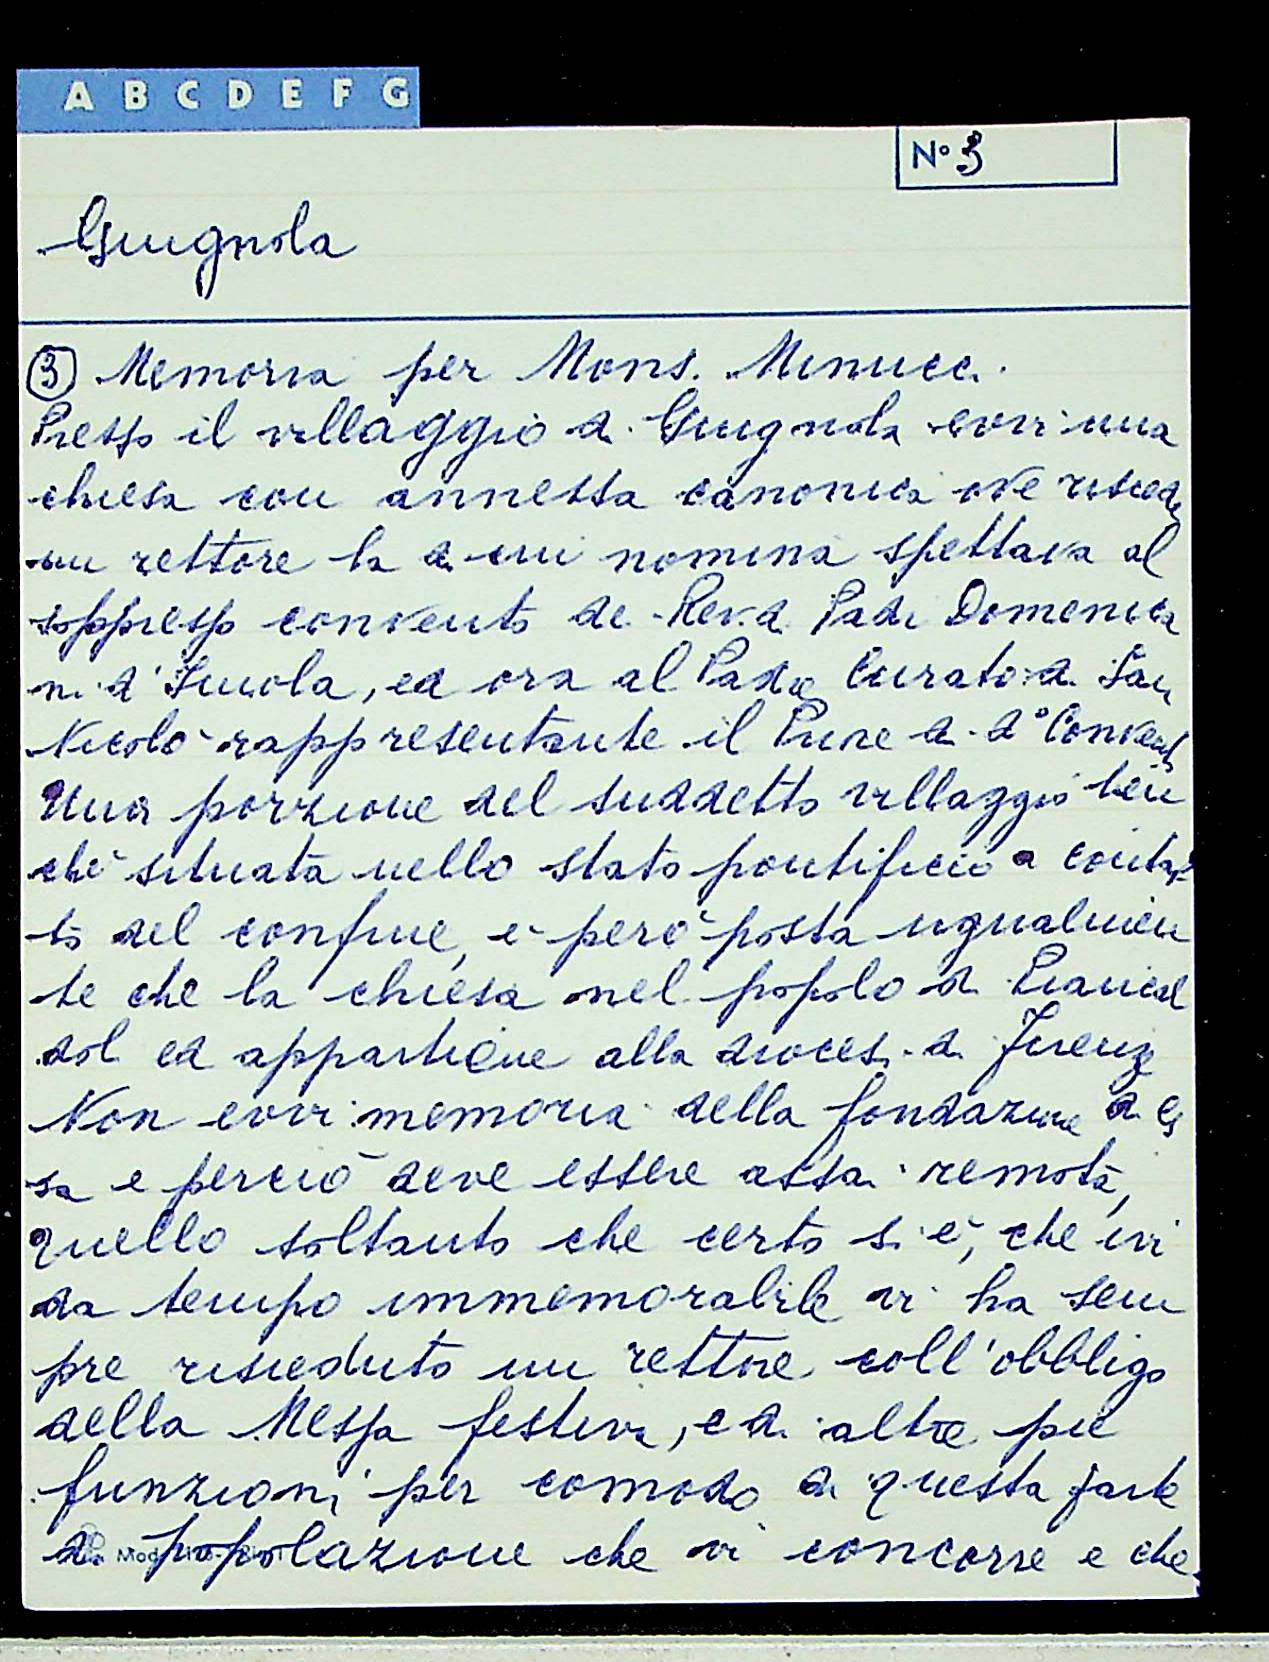 A B C D E F G
N° 3
Giugnola
③ Memoria per Mons. Minucci.
Presso il villaggio di Giugnola evvi una
chiesa con annessa canonica ove risiede
un rettore la di cui nomina spettava al
soppresso convento de Rev.di Padri Domenica
ni d'Imola, ed ora al Padre Curato di San
Nicolò rappresentante il Priore di d° Convent
Una porzione del suddetto villaggio ben
chè situata nello stato pontificio a contat
to del confine, è però posta ugualmen
te che la chiesa nel popolo di Piancal
doli ed appartiene alla diocesi di Firenz
Non evvi memoria della fondazione di es
sa e perciò deve essere assai remota,
quello soltanto che certo si è, che ivi
da tempo immemorabile vi ha sem
pre risieduto un rettore coll'obbligo
della Messa festiva, e di altre pie
funzioni per comodo di questa parte
di popolazione che vi concorre e che